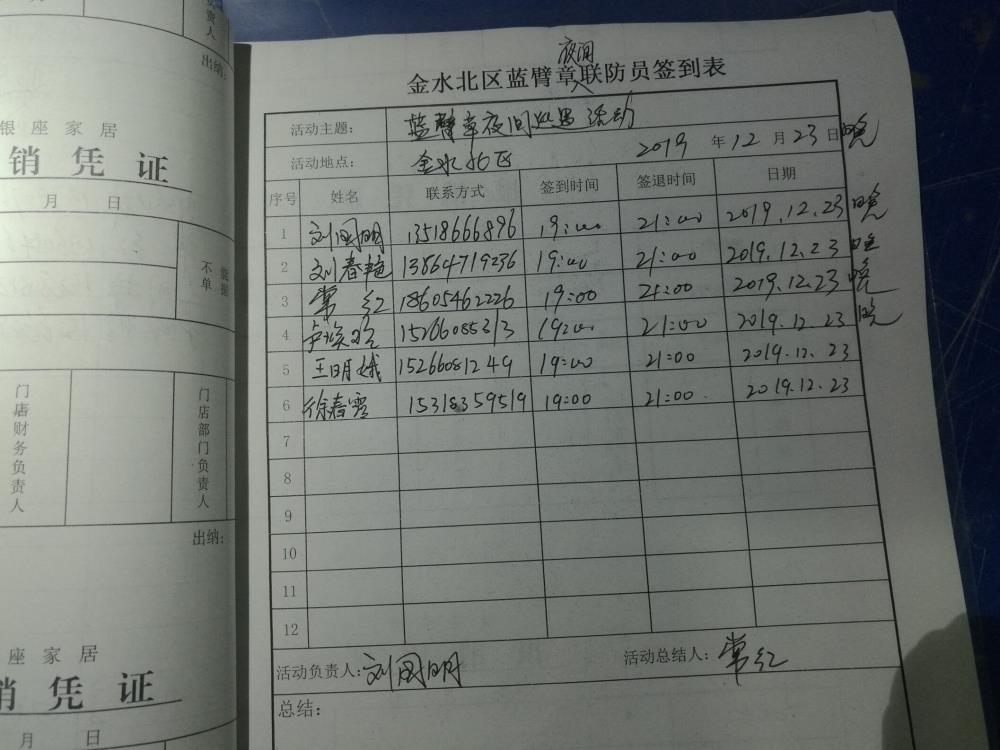 负责人
出纳:
银座家居
销凭证
月 日
不单
门店财务负责人
门店部门负责人
出纳:
座家居
销凭证
月 日
夜间
金水北区蓝臂章联防员签到表
活动主题: 蓝臂章夜间巡逻活动
活动地点: 金水北区 2019年12月23日晚
序号 姓名 联系方式 签到时间 签退时间 日期
1 刘国明 13518666896 19:00 21:00 2019.12.23晚
2 刘春艳 13864719236 19:00 21:00 2019.12.23晚
3 常红 18605462226 19:00 21:00 2019.12.23晚
4 卢 19:00 21:00 2019.12.23晚
5 王明娥 15266081249 19:00 21:00 2019.12.23
6 徐春秀 15318359519 19:00 21:00 2019.12.23
7
8
9
10
11
12
活动负责人: 刘国明 活动总结人: 常红
总结: